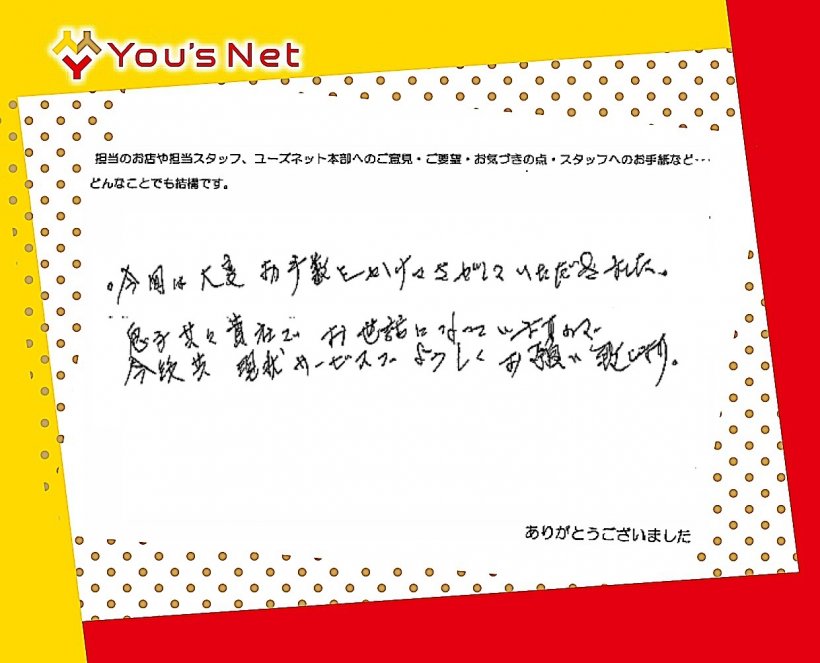 You's Net
担当のお店や担当スタッフ、ユーズネット本部へのご意見・ご要望・お気づきの点・スタッフへのお手紙など…
どんなことでも結構です。
。今回は大変お手数をかけさせていただきました。
息子共々貴社でお世話になっていますので
今後共現状サービスでよろしくお願い致します。
ありがとうございました